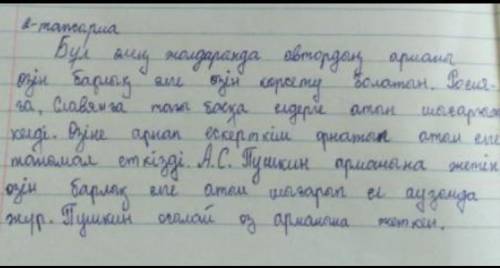 2-тапсырма
Бұл өлең жолдарында автордың арманы
өзін барлық елге өзін көрсету болатын. Россия-
ға, Славянға тағы басқа елдерге атын шығарғысы
келді. Өзіне арнап ескерткіш орнатып атын елге
танымал еткізді. А.С. Пушкин арманына жетіп
өзін барлық елге атын шығарып ел аузында
жүр. Пушкин осылай өз арманына жеткен.